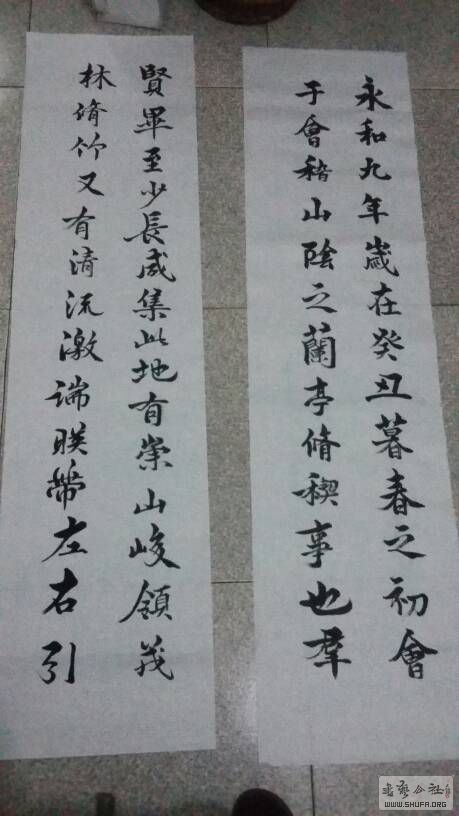 永和九年歲在癸丑暮春之初會
于會稽山陰之蘭亭脩禊事也羣
賢畢至少長咸集此地有崇山峻領茂
林脩竹又有清流激湍暎帶左右引
書藝公社
WWW.SHUFA.ORG